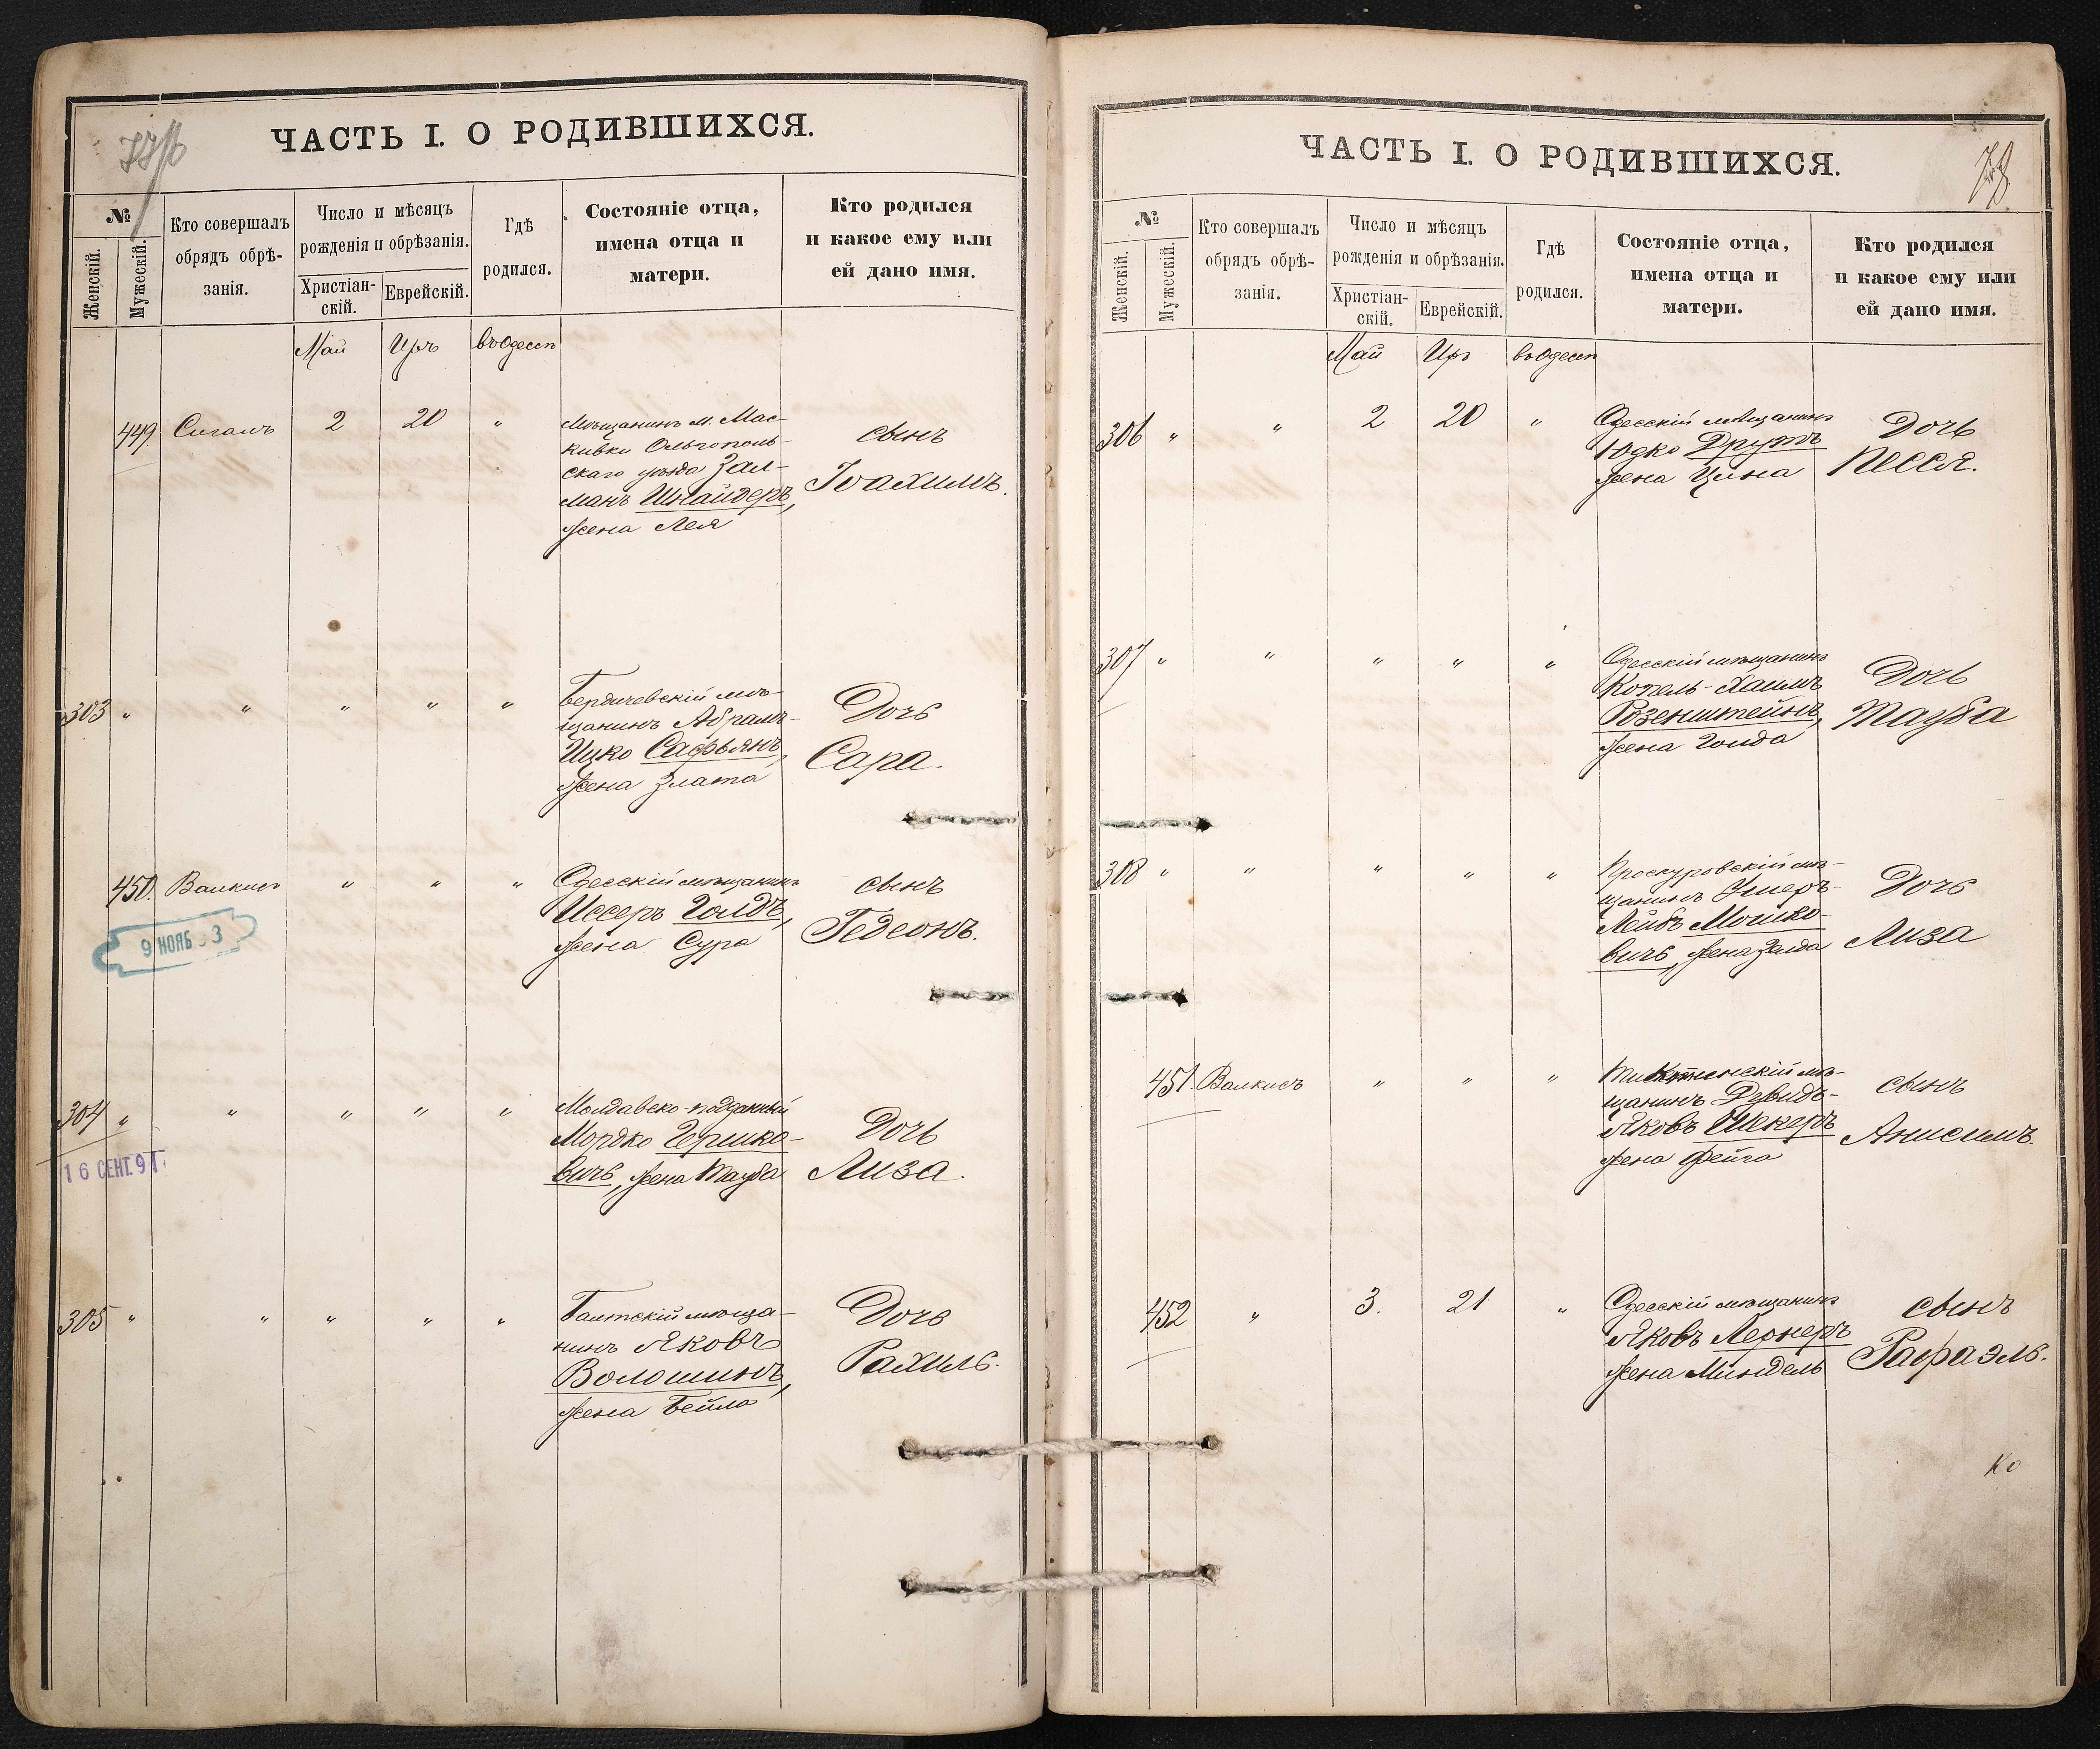 ЧАСТЬ I. О РОДИВШИХСЯ.
№
Женскій.
Мужескій.
Кто совершалъ
обрядъ обрѣ-
занія.
Число и мѣсяцъ
рожденія и обрѣзанія.
Христіан-
скій.
Еврейскій.
Гдѣ
родился.
Состояніе отца,
имена отца и
матери.
Кто родился
и какое ему или
ей дано имя.
Май Иръ въ Одессѣ
449. Сигалъ 2 20 "
Мѣщанинъ м. Мас-
ковки Ольгополь-
скаго уѣзда Зал-
манъ Шнайдеръ,
жена Лея
сынъ
Іоахимъ.
303 " " " " "
Бердичевскій мѣ-
щанинъ Абрамъ-
Ицко Сафьянъ,
жена Злата
Дочь
Сара.
450. Валкисъ " " "
Одесскій мѣщанинъ
Иссеръ Голдъ,
жена Сура
сынъ
Гедеонъ.
9 НОЯБ 3
304 " " " " "
Молдавско-подданный
Мордко Гершко-
вичъ, жена Тауба
Дочь
Лиза.
16 СЕНТ. 91
305 " " " " "
Балтскій мѣща-
нинъ Яковъ
Волошинъ,
жена Бейла
Дочь
Рахиль.
ЧАСТЬ I. О РОДИВШИХСЯ.
78
№
Женскій.
Мужескій.
Кто совершалъ
обрядъ обрѣ-
занія.
Число и мѣсяцъ
рожденія и обрѣзанія.
Христіан-
скій.
Еврейскій.
Гдѣ
родился.
Состояніе отца,
имена отца и
матери.
Кто родился
и какое ему или
ей дано имя.
Май Иръ въ Одессѣ
306 " " 2 20 "
Одесскій мѣщанинъ
Юдко Друтъ
жена Цина
Дочь
Песся.
307 " " " " "
Одесскій мѣщанинъ
Копель-Хаимъ
Розенштейнъ,
жена Голда
Дочь
Тауба
308 " " " " "
Проскуровскій мѣ-
щанинъ Ушеръ-
Лейбъ Мошко-
вичъ, жена Зелда
Дочь
Лиза
451. Валкисъ " " "
мѣ-
щанинъ Давидъ-
Яковъ Шекеръ
жена Фейга
сынъ
Анисимъ.
452 " 3. 21 "
Одесскій мѣщанинъ
Яковъ Лернеръ
жена Миндель
сынъ
Рафаэль.